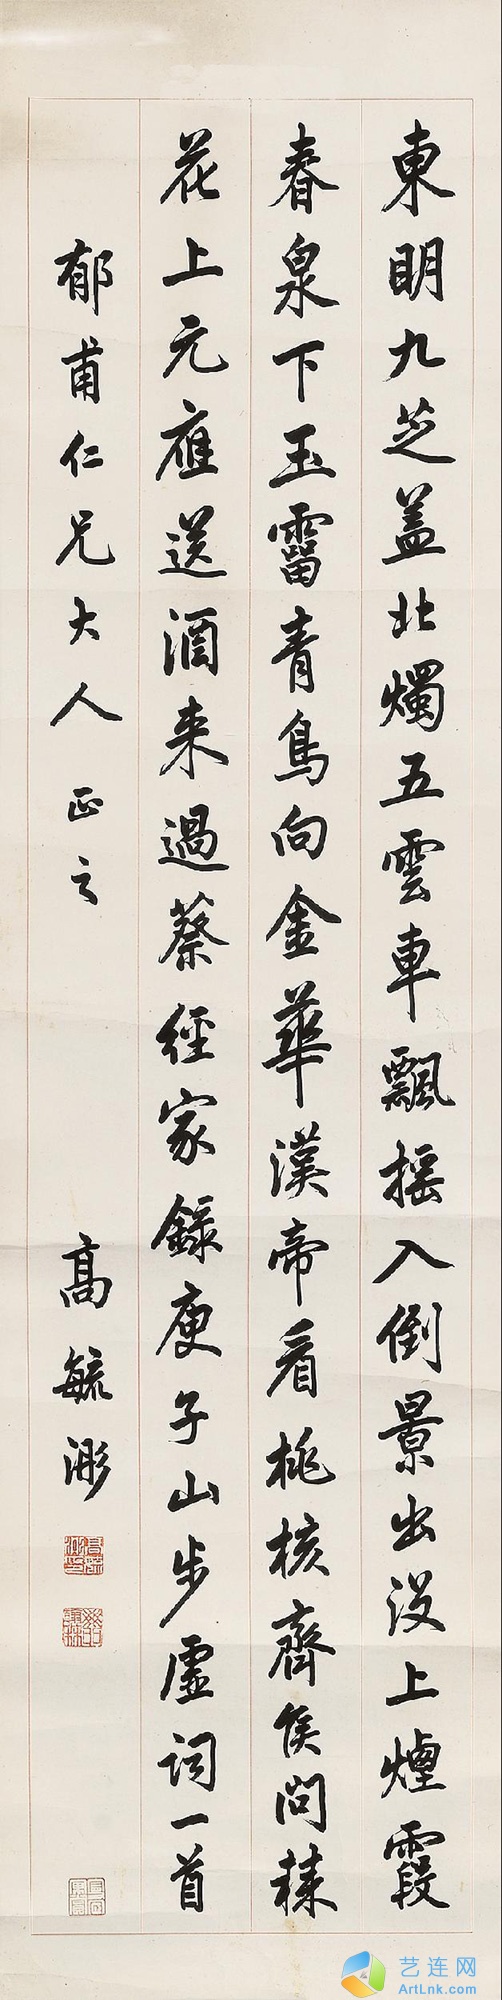 東明九芝盖北燭五雲車飄搖入倒景出没上煙霞
春泉下玉霤青鳥向金華漢帝看桃核齊侯問棘
花上元應送酒来過蔡經家錄庾子山步虛詞一首
郁甫仁兄大人正之
高毓浵
艺连网
ArtLnk.com